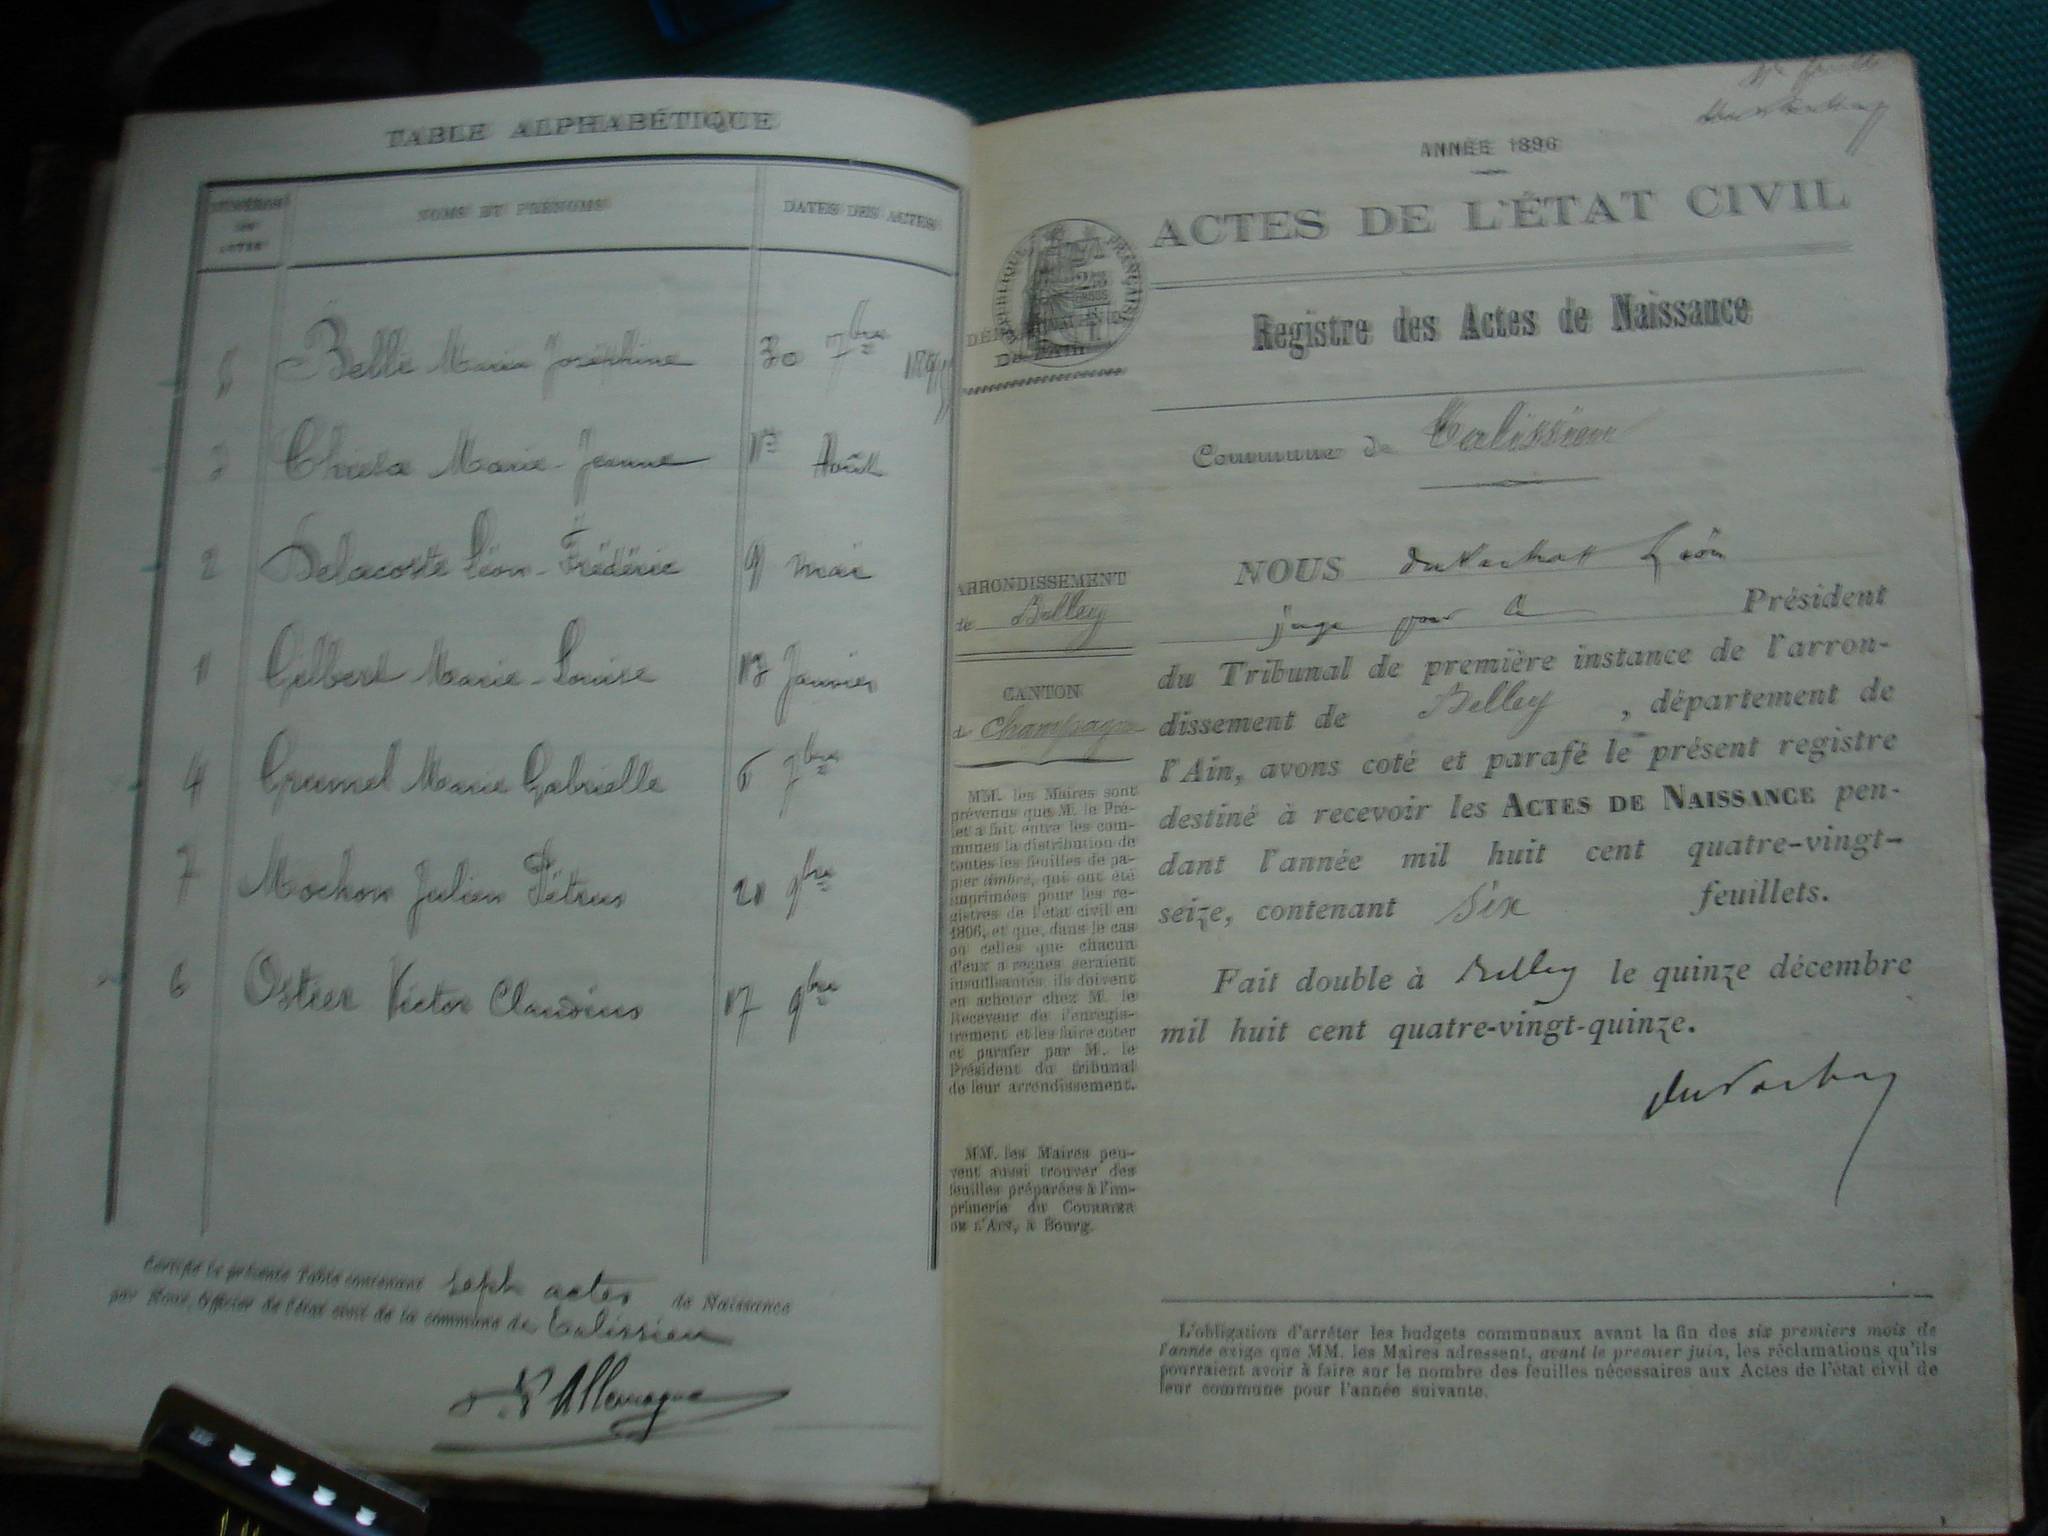 TABLE ALPHABÉTIQUE
NUMÉROS
NOMS ET PRÉNOMS
DATES DES ACTES
5 Bellé Maria Joséphine 30 7bre
3 Chiesa Marie-Jeanne 1er Août
2 Delacoste Léon-Frédéric 9 mai
1 Gilbert Marie-Louise 13 Janvier
4 Grumel Marie Gabrielle 6 7bre
7 Mochon Julien Pétrus 21 9bre
6 Ostier Victor Claudius 17 9bre
Certifié la présente Table contenant sept actes de Naissance
par Nous, Officier de l'état civil de la commune de Talissieu
Allemagne
ANNÉE 1896
ACTES DE L'ÉTAT CIVIL
RÉPUBLIQUE FRANÇAISE
DE L'AIN
Registre des Actes de Naissance
Commune de Talissieu
ARRONDISSEMENT
de Belley
CANTON
de Champagne
MM. les Maires sont
prévenus que M. le Pré-
fet a fait entre les com-
munes la distribution de
toutes les feuilles de pa-
pier timbré, qui ont été
imprimées pour les re-
gistres de l'état civil en
1896, et que, dans le cas
où celles que chacun
d'eux a reçues seraient
insuffisantes, ils doivent
en acheter chez M. le
Receveur de l'enregis-
trement et les faire coter
et parafer par M. le
Président du tribunal
de leur arrondissement.
MM. les Maires peu-
vent aussi trouver des
feuilles préparées à l'im-
primerie du COURRIER
DE L'AIN, à Bourg.
NOUS Léon
juge pour le Président
du Tribunal de première instance de l'arron-
dissement de Belley, département de
l'Ain, avons coté et parafé le présent registre
destiné à recevoir les ACTES DE NAISSANCE pen-
dant l'année mil huit cent quatre-vingt-
seize, contenant Six feuillets.
Fait double à Belley le quinze décembre
mil huit cent quatre-vingt-quinze.
L'obligation d'arrêter les budgets communaux avant la fin des six premiers mois de
l'année exige que MM. les Maires adressent, avant le premier juin, les réclamations qu'ils
pourraient avoir à faire sur le nombre des feuilles nécessaires aux Actes de l'état civil de
leur commune pour l'année suivante.